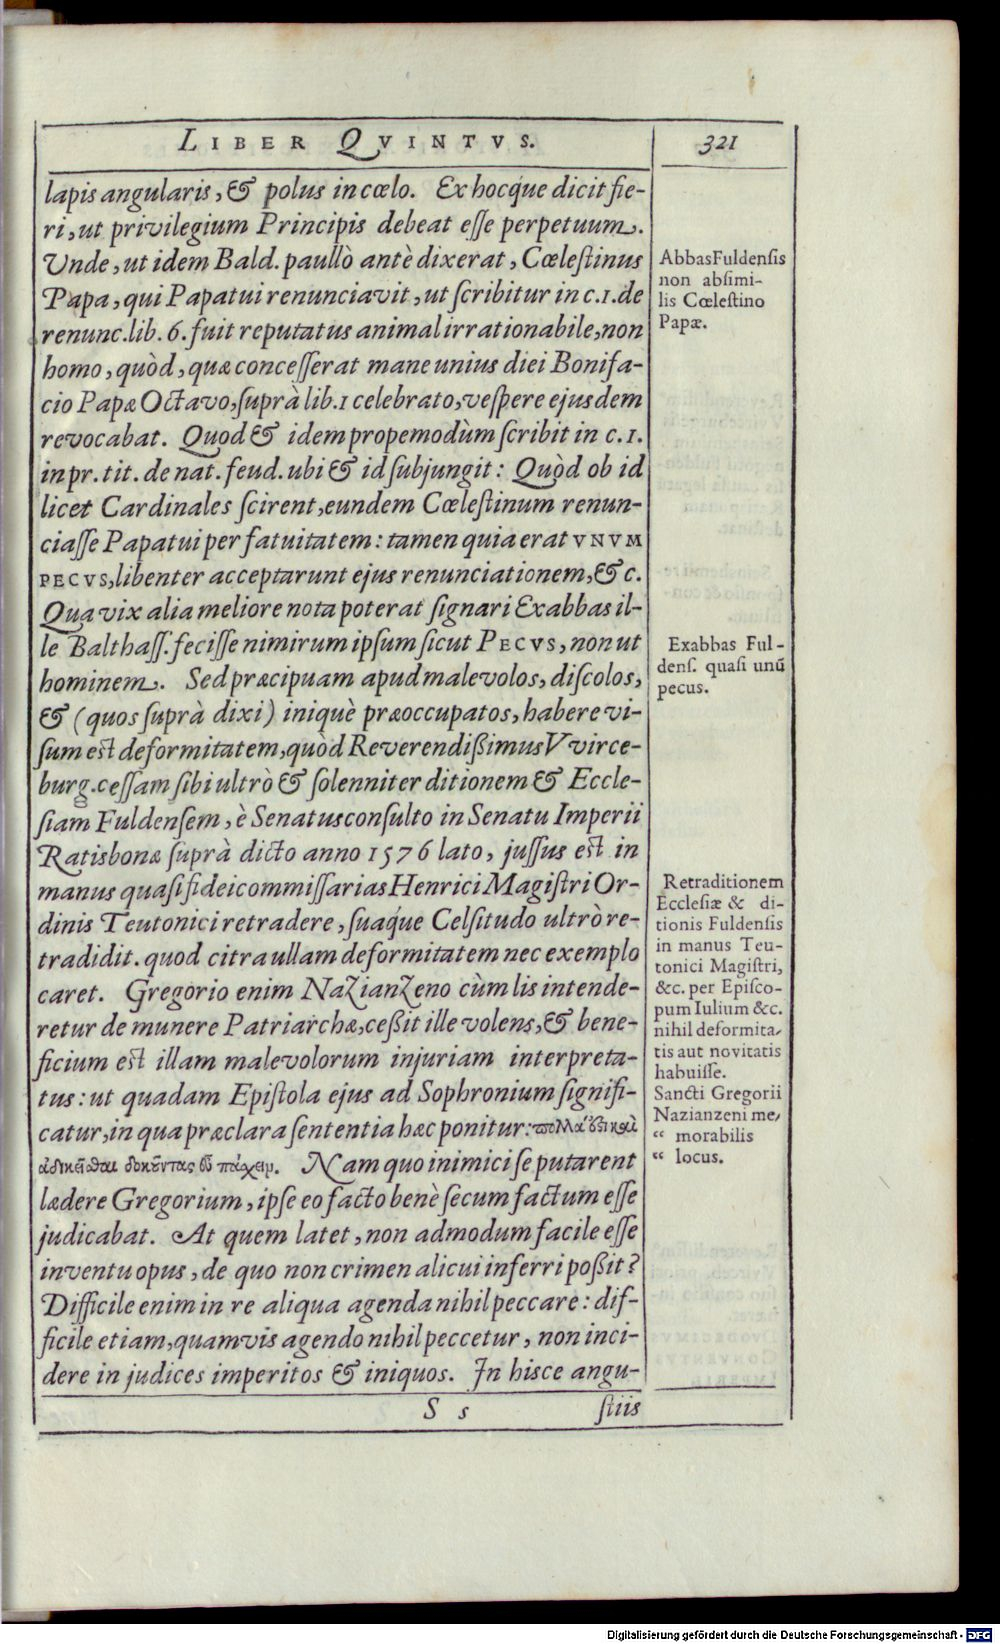 LIBER QVINTVS.
321
lapis angularis, & polus in cœlo. Ex hocq́ue dicit fie-
ri, ut privilegium Principis debeat esse perpetuum.
Unde, ut idem Bald. paullò antè dixerat, Cœlestinus
Papa, qui Papatui renunciavit, ut scribitur in c. 1. de
renunc. lib. 6. fuit reputatus animal irrationabile, non
homo, quòd, quæ concesserat mane unius diei Bonifa-
cio Papæ Octavo, suprà lib. 1 celebrato, vespere ejusdem
revocabat. Quod & idem propemodùm scribit in c. 1.
in pr. tit. de nat. feud. ubi & id subjungit: Quòd ob id
licet Cardinales scirent, eundem Cœlestinum renun-
ciasse Papatui per fatuitatem: tamen quia erat VNVM
PECVS, libenter acceptarunt ejus renunciationem, &c.
Qua vix alia meliore nota poterat signari Exabbas il-
le Balthass. fecisse nimirum ipsum sicut PECVS, non ut
hominem. Sed præcipuam apud malevolos, discolos,
& (quos suprà dixi) iniquè præoccupatos, habere vi-
sum est deformitatem, quòd Reverendißimus VVirce-
burg. cessam sibi ultrò & solenniter ditionem & Eccle-
siam Fuldensem, è Senatusconsulto in Senatu Imperii
Ratisbonæ suprà dicto anno 1576 lato, jussus est in
manus quasi fideicommissarias Henrici Magistri Or-
dinis Teutonici retradere, suaq́ue Celsitudo ultrò re-
tradidit. quod citra ullam deformitatem nec exemplo
caret. Gregorio enim Nazianzeno cùm lis intende-
retur de munere Patriarchæ, ceßit ille volens, & bene-
ficium est illam malevolorum injuriam interpreta-
tus: ut quadam Epistola ejus ad Sophronium signifi-
catur, in qua præclara sententia hæc ponitur:
ἀδικεῖσθαι δοκοῦντας εὖ πάσχειν. Nam quo inimici se putarent
lædere Gregorium, ipse eo facto benè secum factum esse
judicabat. At quem latet, non admodum facile esse
inventu opus, de quo non crimen alicui inferri poßit?
Difficile enim in re aliqua agenda nihil peccare: dif-
ficile etiam, quamvis agendo nihil peccetur, non inci-
dere in judices imperitos & iniquos. In hisce angu-
S s
stiis
Abbas Fuldensis
non absimi-
lis Cœlestino
Papæ.
Exabbas Ful-
dens. quasi unũ
pecus.
Retraditionem
Ecclesiæ & di-
tionis Fuldensis
in manus Teu-
tonici Magistri,
&c. per Episco-
pum Iulium &c.
nihil deformita-
tis aut novitatis
habuisse.
Sancti Gregorii
Nazianzeni me-
“ morabilis
“ locus.
Digitalisierung gefördert durch die Deutsche Forschungsgemeinschaft - DFG